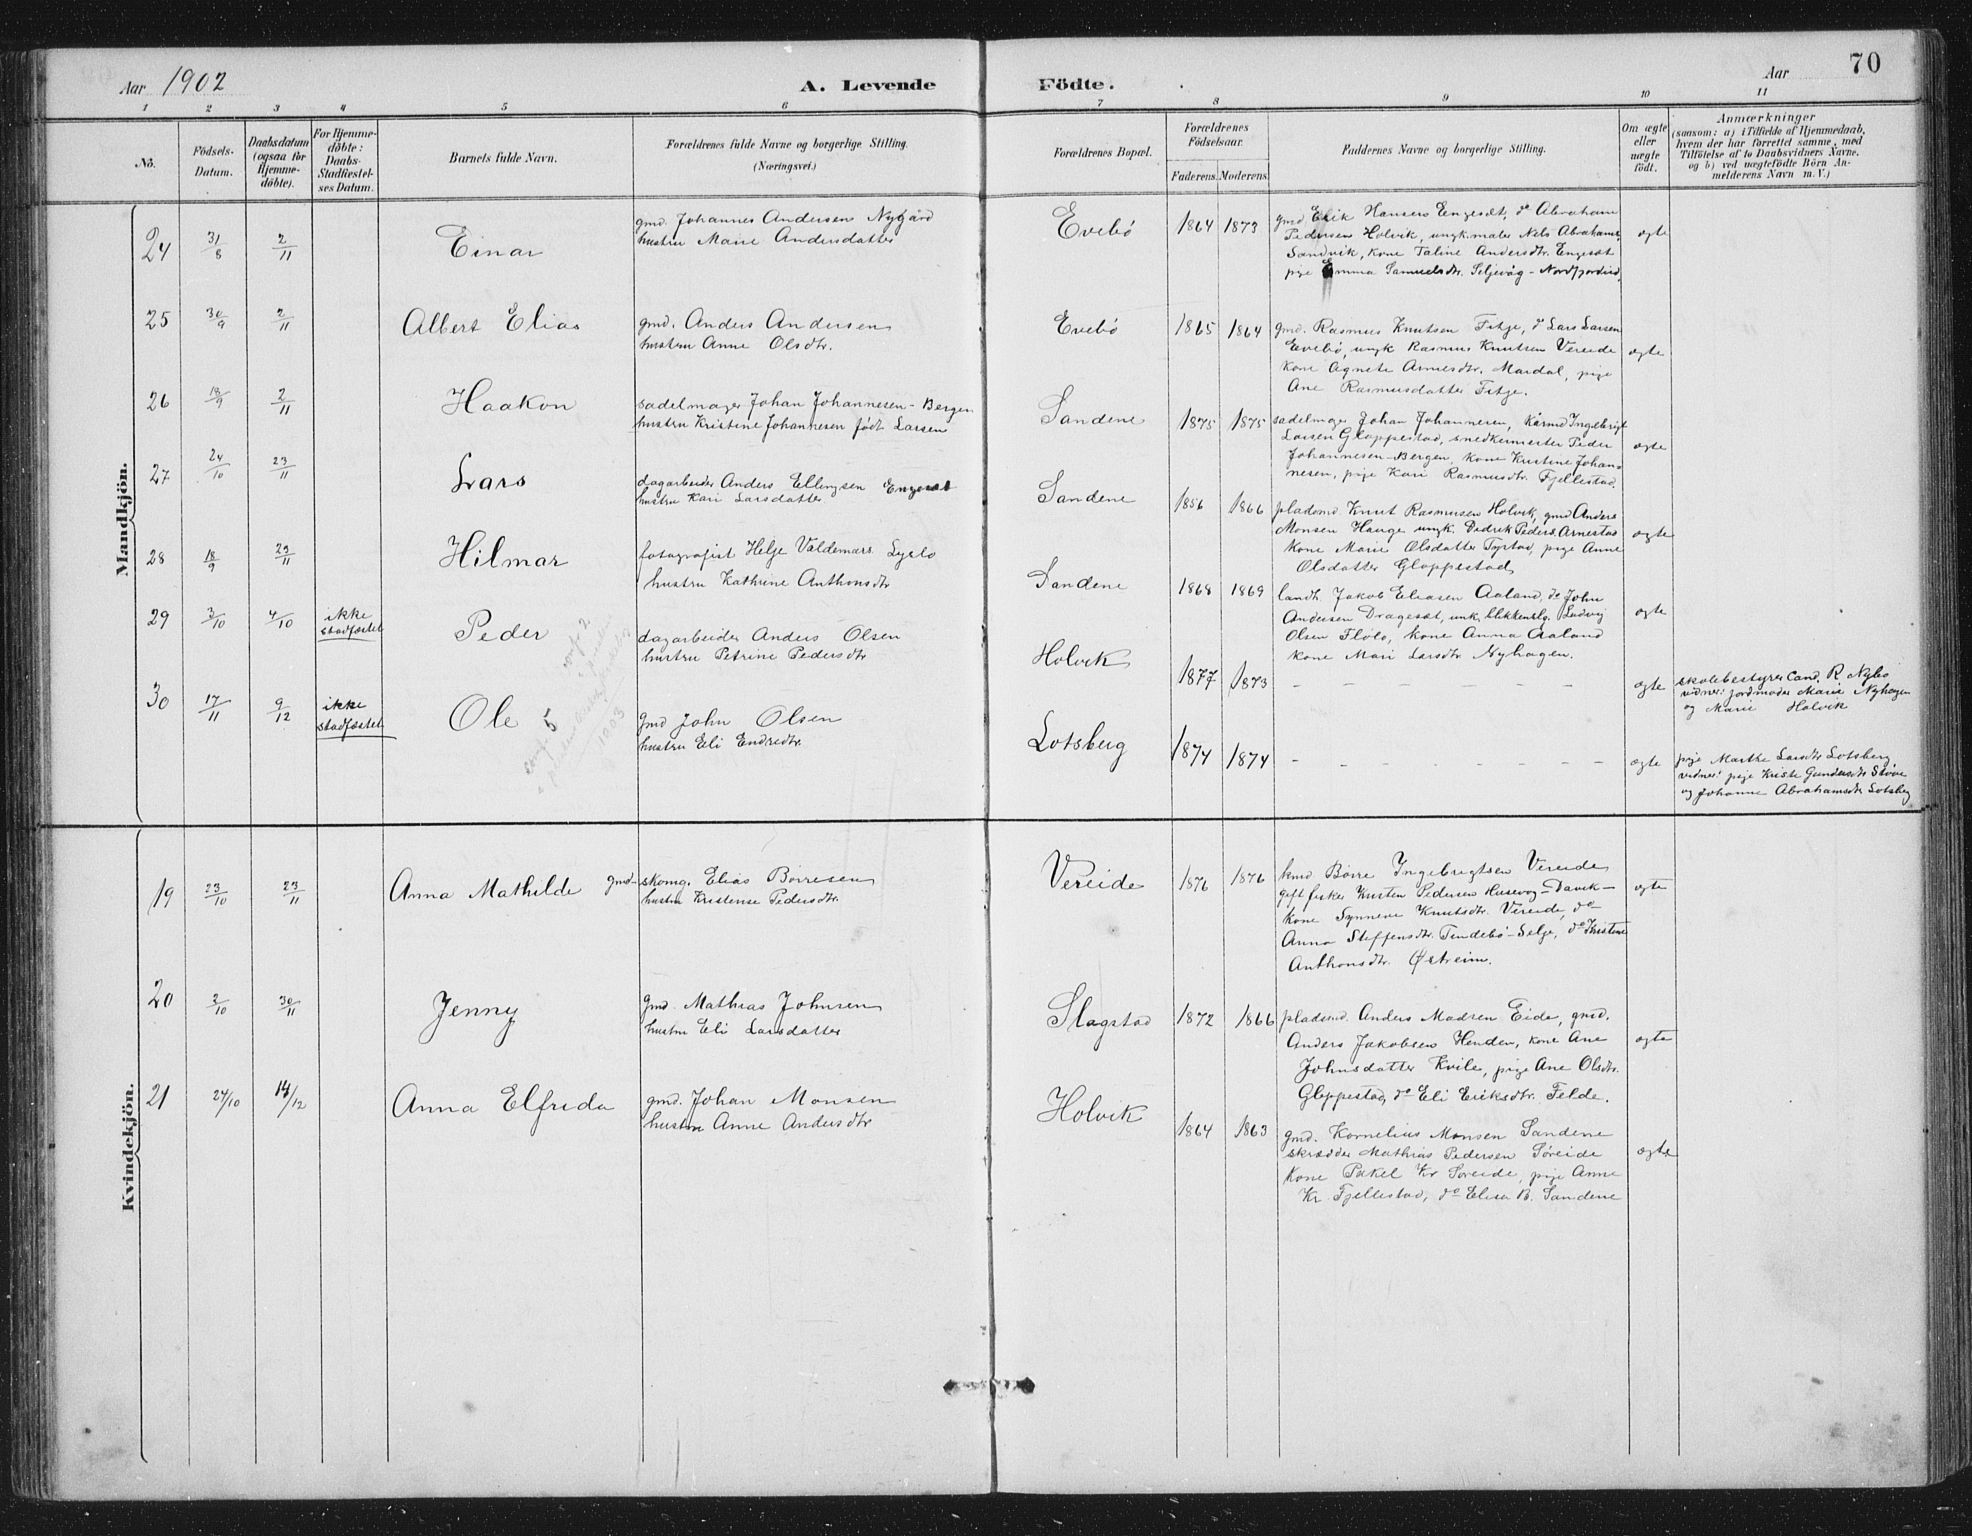 Aar 1902
A. Levende
Födte.
Aar
70
1 2 3 4 5 6 7 8 9 10 11
No.
Födsels-
Datum.
Daabsdatum
(ogsaa for
Hjemme-
døbte).
For Hjemme-
døbte:
Daabs-
Stadfæstel-
ses Datum.
Barnets fulde Navn.
Forældrenes fulde Navne og borgerlige Stilling.
(Næringsvei.)
Forældrenes Bopæl.
Forældrenes
Födselsaar.
Faderens. Moderens.
Faddernes Navne og borgerlige Stilling.
Om ægte
eller
uægte
födt.
Anmærkninger
(saasom: a) i Tilfælde af Hjemmedaab,
hvem der har forrettet samme, med
Tilföielse af to Daabsvidners Navne,
og b) ved uægtefödte Börn An-
melderens Navn m. V.)
Mandkjön.
24 31/8 2/11 Einar
gmd. Johannes Andersen Nygård
hustru Marie Andersdatter
Evebö 1864 1873
gmd. Erik Hansen Engesæt, do Abraham
Pedersen Holvik, ungk. maler Nils Abrahams.
Sandvik, kone Taline Andersdtr. Engesæt
pige Emma Samuelsdtr. Seljevåg - Nordfjordeid
ægte
25 30/9 2/11 Albert Elias
gmd. Anders Andersen
hustru Anne Olsdtr.
Evebö 1865 1864
gmd. Rasmus Knutsen Fitje, do Lars Larsen
Evebö, ungk Rasmus Knutsen Vereide
kone Agnete Arnesdtr. Mardal, pige
Ane Rasmusdatter Fitje.
ægte
26 18/9 2/11 Haakon
sadelmager Johan Johannesen - Bergen
hustru Kristine Johannesen födt Larsen
Sandene 1875 1875
sadelmager Johan Johannesen, Ingebrigt
Larsen Gloppestad, snedkermester Peder
Johannesen - Bergen, kone Kristine Johan-
nesen, pige Kari Rasmusdtr. Fjellestad.
ægte
27 24/10 23/11 Lars
dagarbeider Anders Ellingsen Engesæt
hustru Kari Larsdatter
Sandene 1856 1866
pladsmd. Knut Rasmusen Holvik, gmd Anders
Monsen Hauge ungk. Didrik Peders. Arnestad
kone Marie Olsdatter Tystad, pige Anne
Olsdatter Gloppestad
ægte
28 18/9 23/11 Hilmar
fotografist Helje Valdemars.
hustru Kathrine Anthonsdtr
Sandene 1868 1869
landh. Jakob Eliasen Aaland, do John
Andersen Dragesæt, unk. blikkenslg. Ludvig
Olsen Flölo, kone Anna Aaland
kone Mari Larsdtr Nyhagen.
ægte
29 3/10 4/10 ikke
stadfæstet
Peder
dagarbeider Anders Olsen
hustru Petrine Pedersdtr
Holvik 1877 1873
ægte
skolebestyrer Cand. R Nybö
vidner: jordmoder Marie Nyhagen
og Marie Holvik
30 17/11 9/12 ikke
stadfæstet
Ole
gmd John Olsen
hustru Eli Endredtr.
Lotsberg 1874 1874
ægte
pige Marthe Larsdtr Lotsberg
vidner: pige Kristi Gundersdtr
og Johanne Abrahamsdtr Lotsberg
1903
Kvindekjön.
19 23/10 23/11 Anna Mathilde
gmd- skomg. Elias Börresen
hustru Kristense Pedersdtr.
Vereide 1876 1876
kmd Börre Ingebrigtsen Vereide
gift fisker Kristen Pedersen Husevog - Davik -
kone Synneve Knutsdtr. Vereide, do
Anna Steffensdtr. - Selje, do Kristine
Anthonsdtr. Östreim.
ægte
20 2/10 30/11 Jenny
gmd. Mathias Johnsen
hustru Eli Larsdatter
Slagstad 1872 1866
pladsmd. Anders Madsen Eide, gmd.
Anders Jakobsen Henden, kone Ane
Johnsdatter Kvile, pige Ane Olsdtr.
Gloppestad, do Eli Eriksdtr. Felde.
ægte
21 24/10 14/12 Anna Elfrida
gmd. Johan Monsen
hustru Anne Andersdtr
Holvik 1864 1863
gmd. Kornelius Monsen Sandene
skrædder Mathias Pedersen Söreide
kone Rakel Kr Söreide, pige Anne
Kr. Fjellestad, do Elisa B. Sandene
ægte